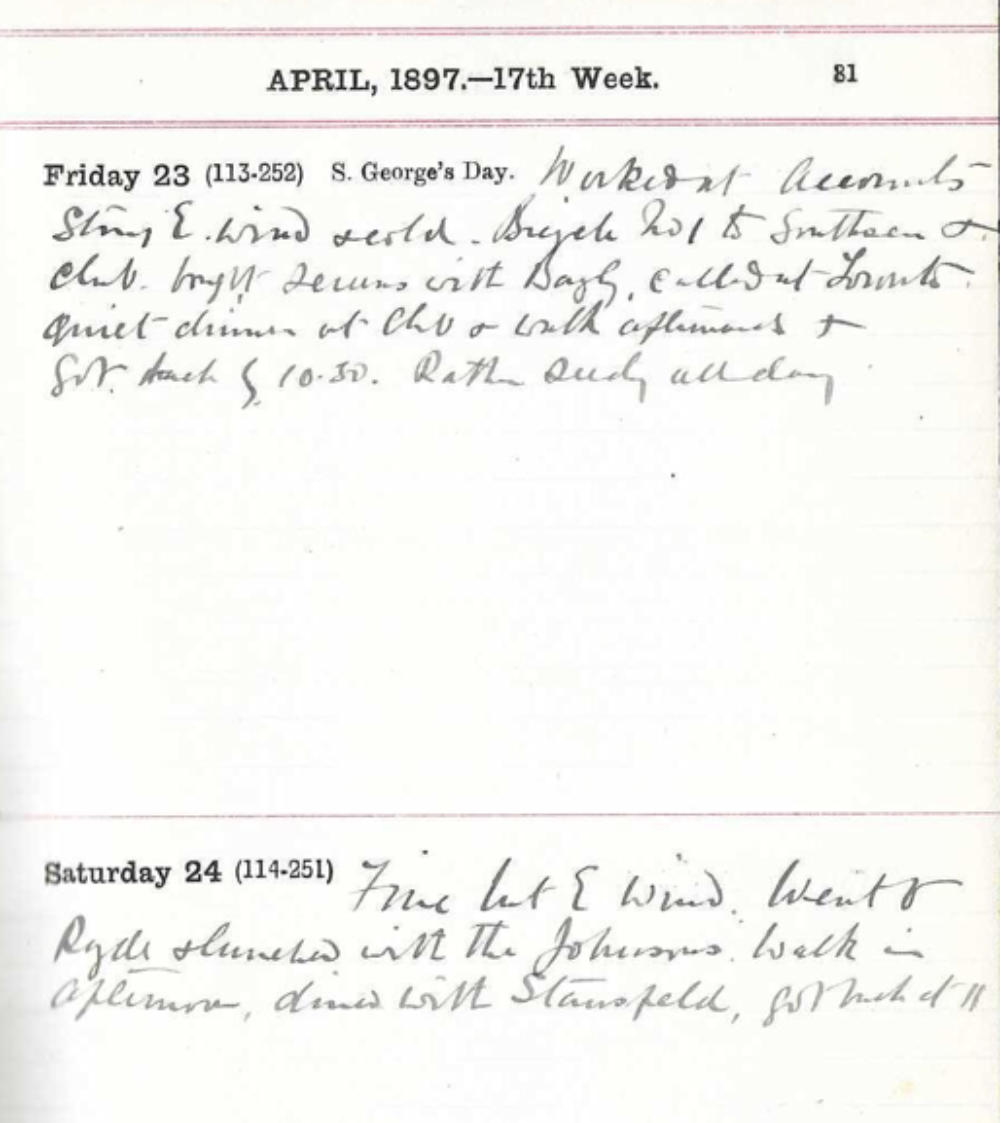 APRIL, 1897.—17th Week. 81
Friday 23 (113-252) S. George's Day. Worked at Accounts
Strong E. wind & cold. Bicycle No 1 to Southsea &
Club. with called at
quiet dinner at Club & walk afterwards &
got back by 10.30. Rather seedy all day
Saturday 24 (114-251) Fine but E wind. Went to
Ryde & lunched with the Johnsons. Walk in
afternoon, dined with Stansfeld, got back at 11